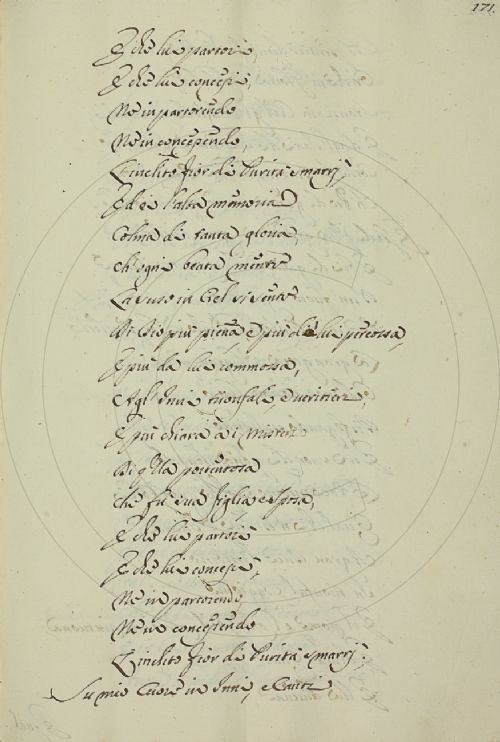 171.
E che lui partorì,
E che lui concepì,
Ne in partorendo
Ne in concependo,
L'inclito fior di Purità smarrì;
E di è l'alta memoria
Colma di tanta gloria,
Ch'ogni beata mente
La suso in Ciel si sente
Di Dio più piena e più di lui percossa,
E più da lui commossa,
Agl'Inni trionfali, e
E più chiara à i Misteri
Di q'lla portentosa
Che fù sua figlia e sposa,
E che lui partorì
E che lui concepì,
Ne in partorendo
Ne in concependo
L'inclito fior di Purità smarrì;
Su mio Cuore in Inni, e Canti